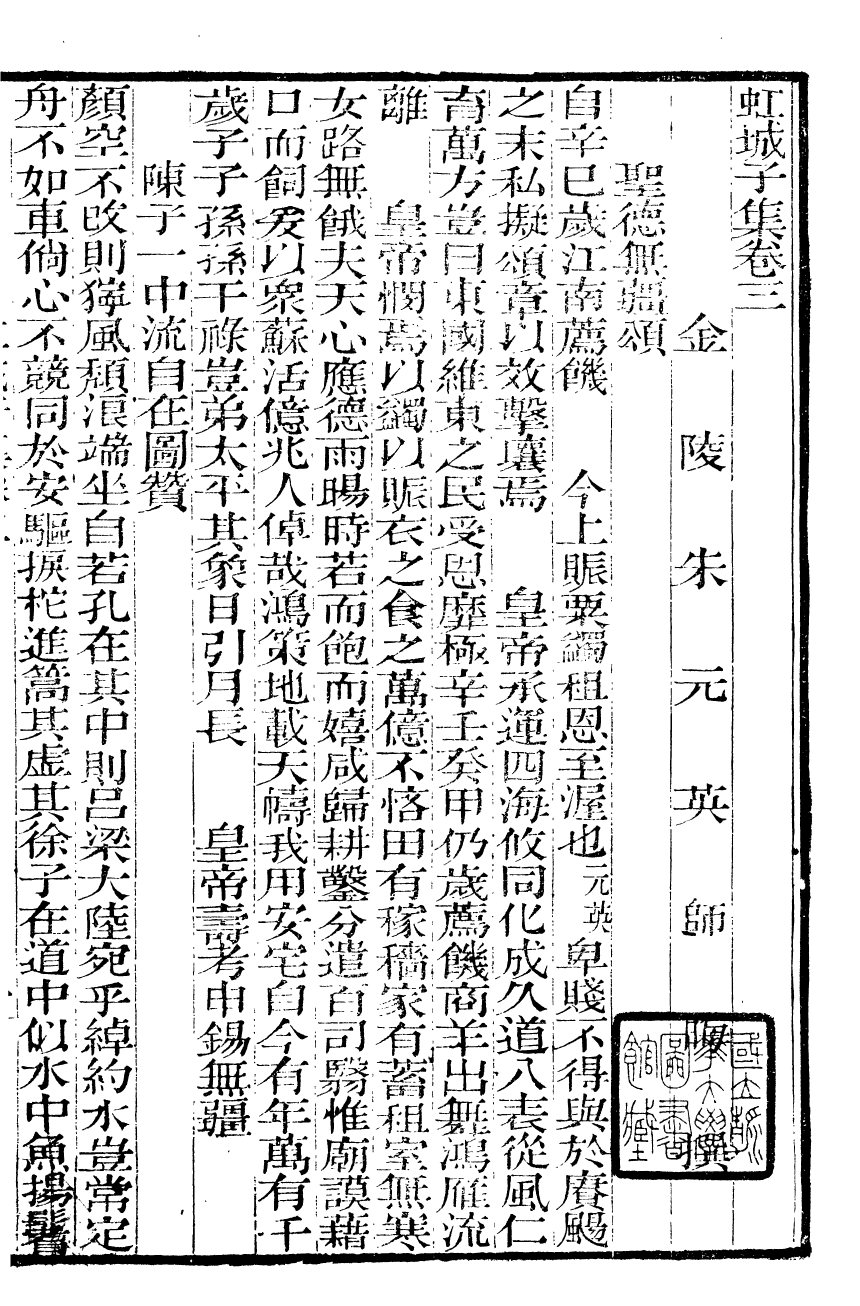 虹城子集卷三
金陵朱元英師 撰
聖德無疆頌
自辛巳歲江南薦饑 今上賑粟蠲租恩至渥也元英卑賤不得與於賡颺
之末私擬頌章以效擊壤焉 皇帝承運四海攸同化成久道八表從風仁
畜萬方豈曰東國維東之民受恩靡極辛壬癸甲仍歲薦饑商羊出舞鴻雁流
離 皇帝憫焉以蠲以賑衣之食之萬億不悋田有稼穡家有蓄租室無寒
女路無餓夫天心應德雨暘時若而飽而嬉咸歸耕鑿分遣百司翳惟廟謨藉
口而飼爰以衆蘇活億兆人倬哉鴻策地載天幬我用安宅自今有年萬有千
歲子子孫孫干祿豈弟太平其象日引月長 皇帝壽考申錫無疆
陳子一中流自在圖贊
顏空不改則獰風頹浪端坐自若孔在其中則呂梁大陸宛乎綽約水豈常定
舟不如車倘心不競同於安驅捩柁進篙其虛其徐子在道中似水中魚揚鬐
國立
圖書
館藏